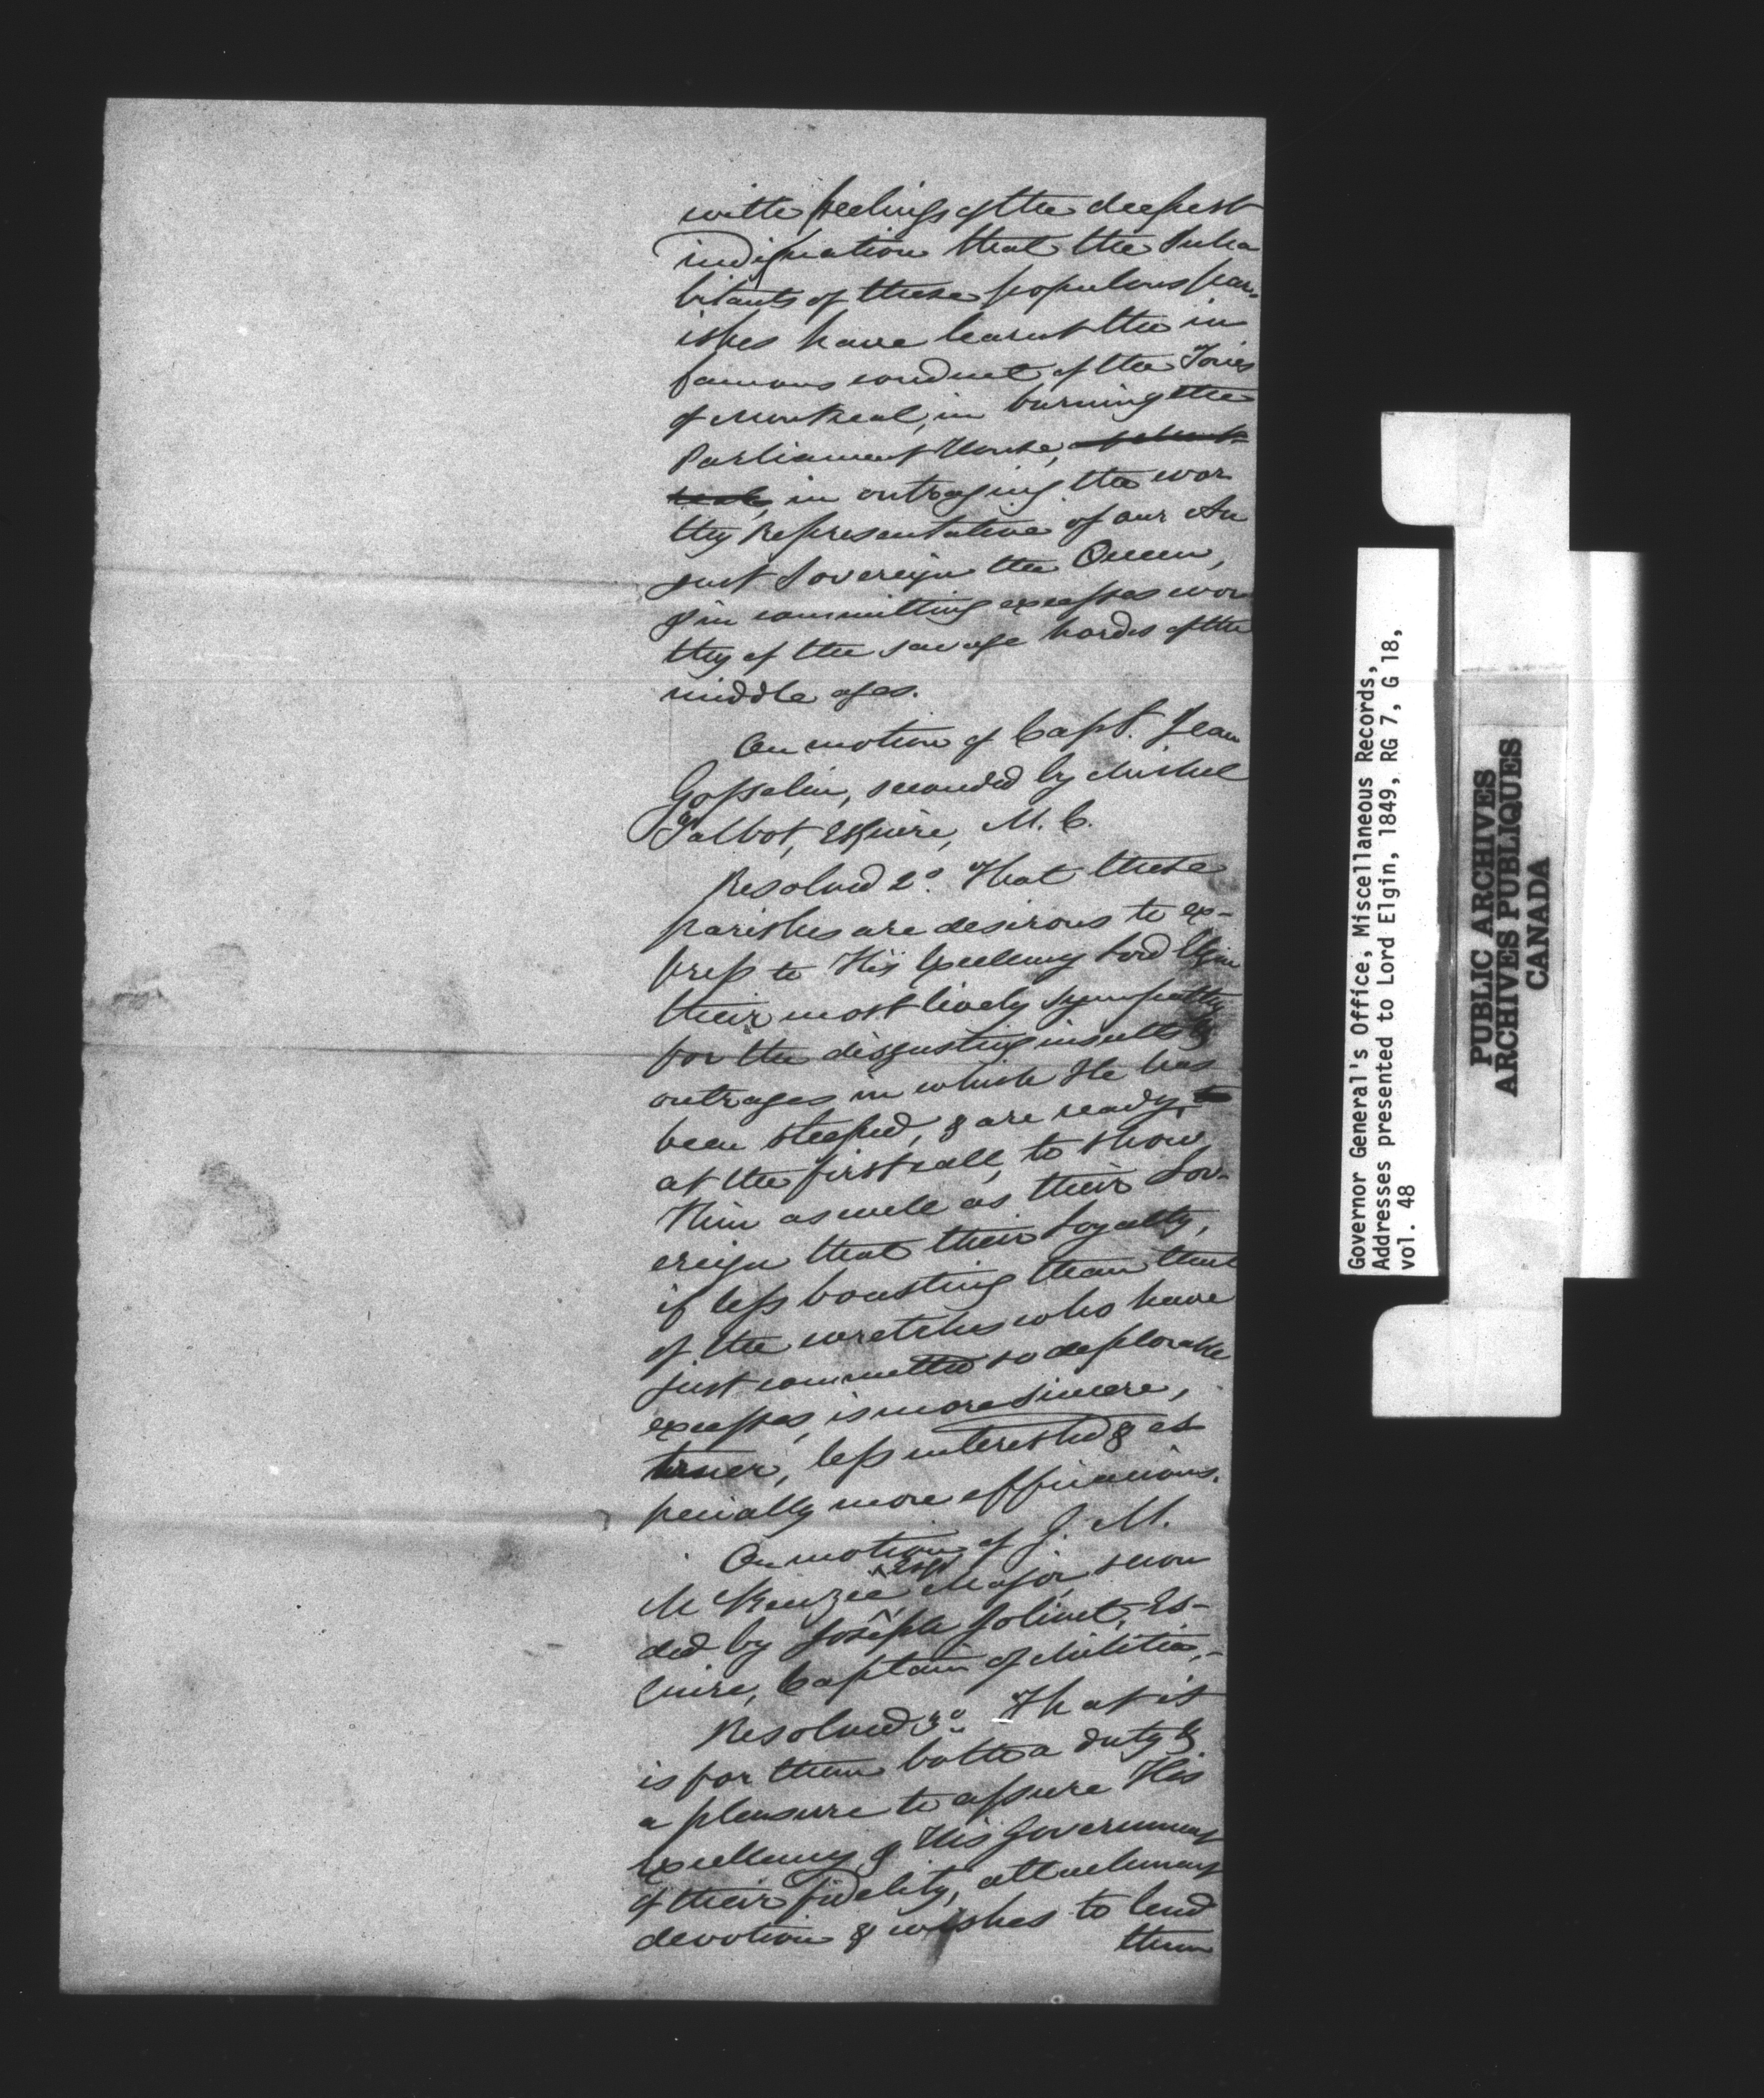 with feelings of the deepest
indignation that the Inha
bitants of these populous par-
ishes have learnt the in
famous conduct of the Tories
of Montreal, in burning the
Parliament House,
in outraging the wor
thy Representative of our Au
gust Sovereign the Queen,
& in committing excesses wor
thy of the savage hordes of the
middle ages.
On motion of Capt. Jean
Gosselin, seconded by Michel
Talbot, Esquire, M. C.
Resolved 2o. That these
parishes are desirous to ex-
press to His Excellency Lord Elgin
their most lively sympathy
for the disgusting insults &
outrages in which He has
been steeped, & are ready,
at the first call, to show
Him as well as their Sov-
ereign that their Loyalty,
if less boasting than that
of the wretches who have
just committed so deplorable
excesses, is more sincere,
truer, less interested & es
pecially more efficacious.
On motion of J. M.
McKenzie, Esqr Major, secon
ded by Joseph Jolivet, Es-
quire, Captain of Militia,-
Resolved 3o. That it
is for them both a duty &
a pleasure to assure His
Excellency & His Government
of their fidelity, attachment
devotion & wishes to lend
them
Governor General's Office, Miscellaneous Records,
Addresses presented to Lord Elgin, 1849, RG 7, G 18,
vol. 48
PUBLIC ARCHIVES
ARCHIVES PUBLIQUES
CANADA